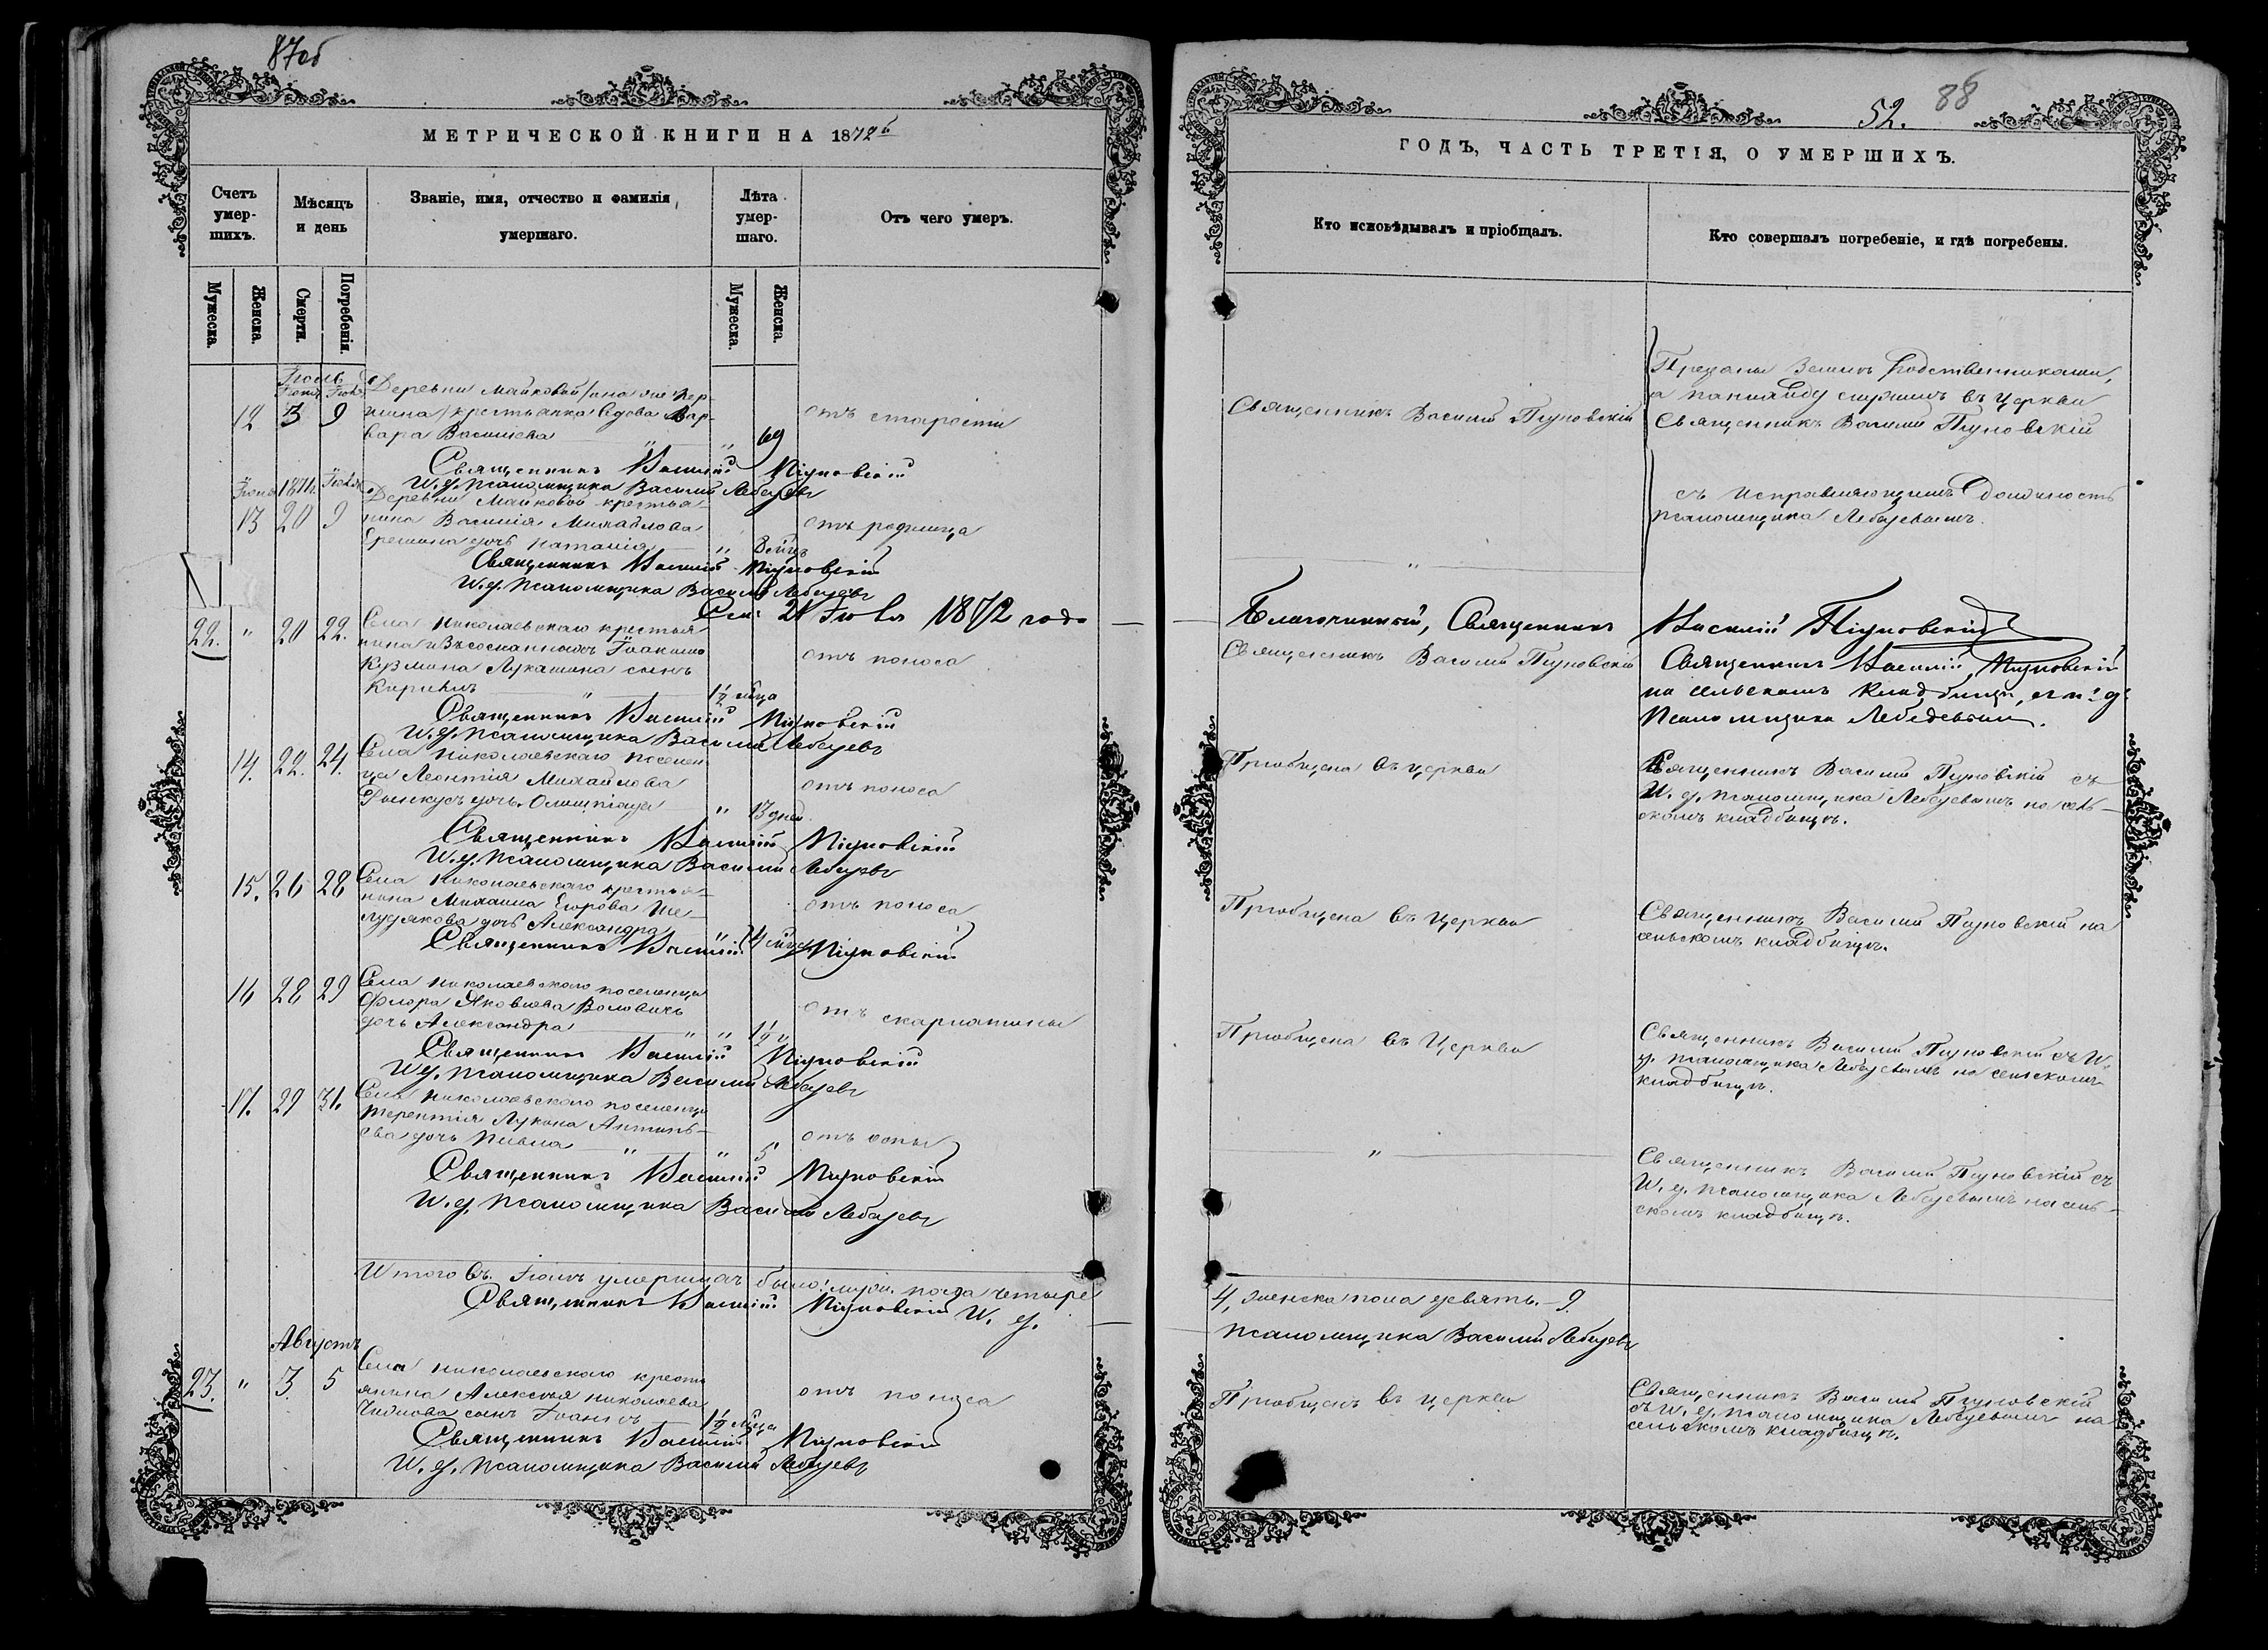 87об
МЕТРИЧЕСКОЙ КНИГИ НА 1872й
Счетъ умер-шихъ.
Мѣсяцъ и день
Званіе, имя, отчество и фамилія умершаго.
Лѣта умер-шаго.
Отъ чего умеръ.
Мужеска.
Женска.
Смерти.
Погребенія.
Мужеска.
Женска.
Іюль
12 3 9 Деревни Майковой
крестьянка вдова Вар-
вара Васильева " " 69 отъ старости
Священникъ Василій Пѣуновскій
И. д. псаломщика Василій Лебедевъ
13 20 9 Деревни Майковой крестья-
нина Василія Михайлова
дочь Наталія " отъ родимца
Священникъ Василій
И. д. псаломщика Василій Лебедевъ
21 Іюля 1872 года
22. " 20 22. Села Николаевскаго крестья-
нина Іоакима
Кузмина Лукашина сынъ
Кириллъ " 1½ м‑ца отъ поноса
Священникъ Василій
И. д. псаломщика Василій Лебедевъ
14. 22. 24. Села Николаевскаго поселен-
ца Леонтія Михайлова
дочь Олимпіада " 13 дней отъ поноса
Священникъ Василій
И. д. псаломщика Василій Лебедевъ
15. 26 28 Села Николаевскаго крестья-
нина Михаила Егорова Ше-
лудякова дочь Александра " отъ поноса
Священникъ Василій
16 28 29 Села Николаевскаго поселенца
Флора Яковлева Воловичъ
дочь Александра " " 1½ отъ скарлатины
Священникъ Василій
И. д. псаломщика Василій Лебедевъ
17. 29 31. Села Николаевскаго поселенца
Терентія Лукина Антипь-
ева дочь " " 5 отъ оспы
Священникъ Василій
И. д. псаломщика Василій Лебедевъ
Итого въ Іюлѣ умершихъ было: муж. пола четыре
Священникъ Василій И. д.
Августъ
23. " 3. 5 Села Николаевскаго кресть-
янина Алексѣя Николаева
сынъ Іоаннъ 1½ м‑ца отъ поноса
Священникъ Василій
И. д. псаломщика Василій Лебедевъ
52. 88
ГОДЪ, ЧАСТЬ ТРЕТІЯ, О УМЕРШИХЪ.
Кто исповѣдывалъ и пріобщалъ.
Кто совершалъ погребеніе, и гдѣ погребены.
Священникъ Василій
Преданы землѣ родственниками,
а панихиду служилъ въ церкви
Священникъ Василій
съ исправляющимъ должность
псаломщика Лебедевымъ.
"
Благочинный, Священникъ Василій
Священникъ Василій
Священникъ Василій
на сельскомъ кладбищѣ, съ и. д.
псаломщика Лебедевымъ.
Пріобщена въ церкви
Священникъ Василій съ
И. д. псаломщика Лебедевымъ на сель-
скомъ кладбищѣ.
Пріобщена въ Церкви
Священникъ Василій на
сельскомъ кладбищѣ.
Пріобщена въ Церкви
Священникъ Василій съ И.
д. псаломщика Лебедевымъ на сельскомъ
кладбищѣ.
"
Священникъ Василій съ
И. д. псаломщика Лебедевымъ на сель-
скомъ кладбищѣ.
4, женска пола девять. – 9
псаломщика Василій Лебедевъ
Пріобщенъ въ церкви
Священникъ Василій
съ И. д. псаломщика Лебедевымъ на
сельскомъ кладбищѣ.